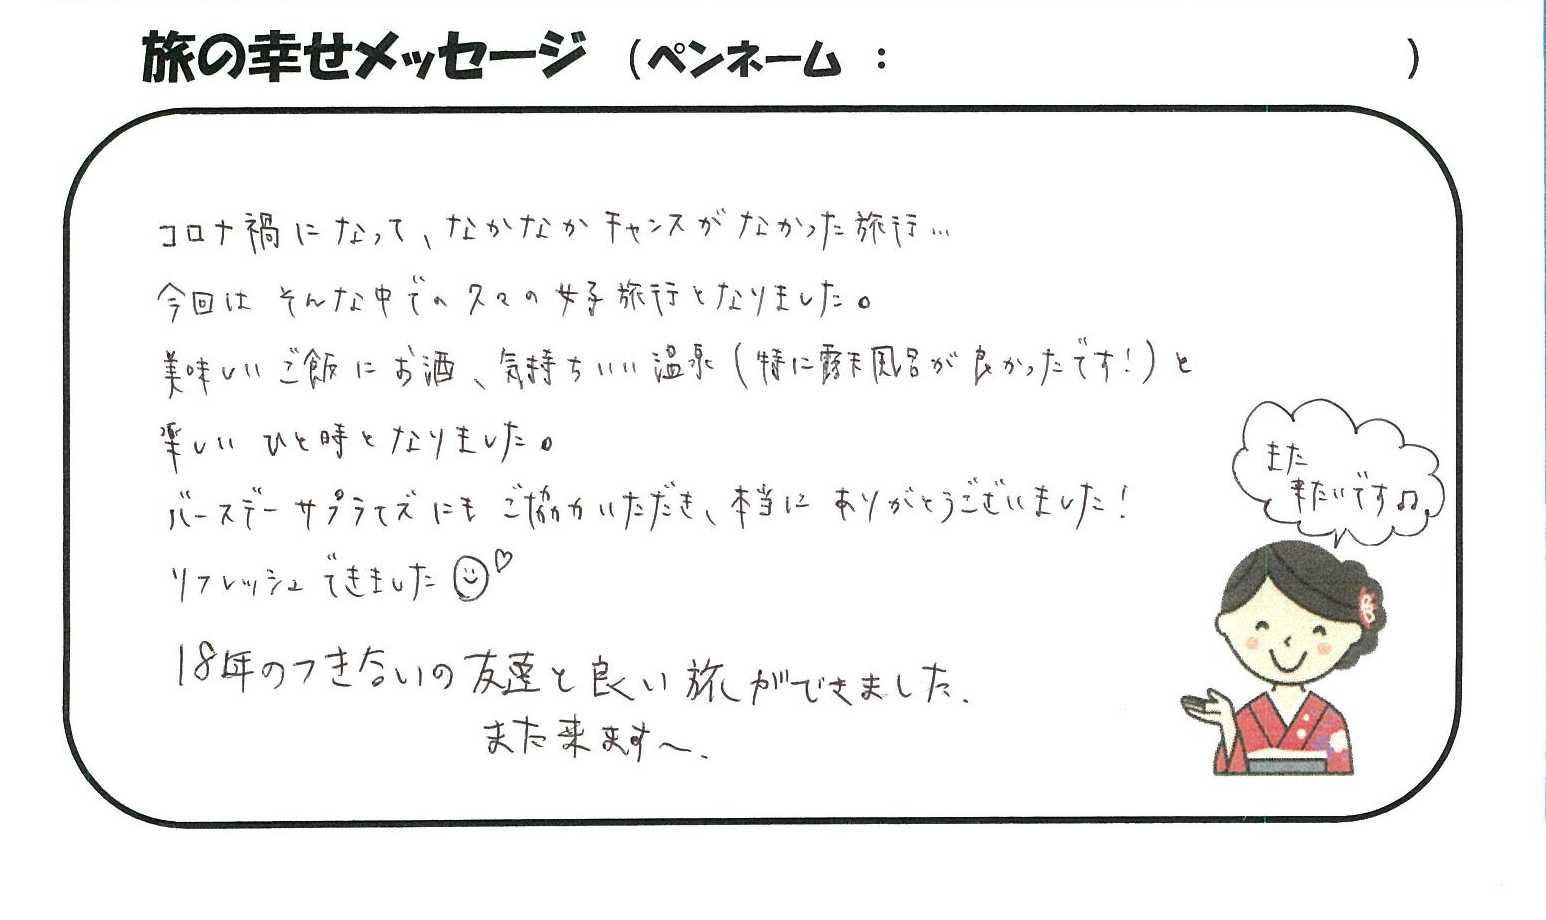 旅の幸せメッセージ (ペンネーム : )
コロナ禍になって、なかなかチャンスがなかった旅行…
今回はそんな中での久々の女子旅行となりました。
美味しいご飯にお酒、気持ちいい温泉(特に露天風呂が良かったです!)と
楽しいひと時となりました。
バースデーサプライズにもご協力いただき、本当にありがとうございました!
リフレッシュできました☺♡
18年のつき合いの友達と良い旅ができました.
また来ます〜.
また
来たいです♫